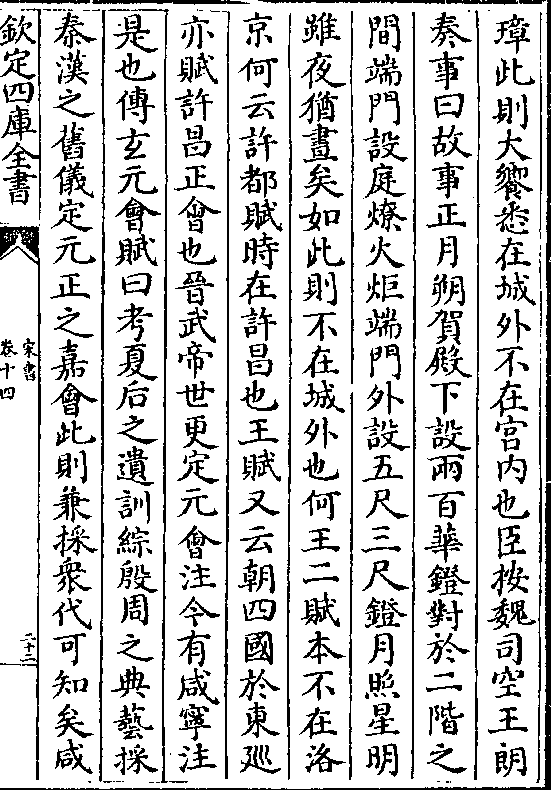 璋此則大饗悉在城外不在宫内也臣按魏司空王朗
奏事曰故事正月朔賀殿下設兩百華鐙對於二階之
間端門設庭燎火炬端門外設五尺三尺鐙月照星明
雖夜猶晝矣如此則不在城外也何王二賦本不在洛
京何云許都賦時在許昌也王賦又云朝四國於東廵
亦賦許昌正㑹也晉武帝世更定元㑹注今有咸寧注
是也傅玄元㑹賦曰考夏后之遺訓綜殷周之典藝採
秦漢之舊儀定元正之嘉㑹此則兼採衆代可知矣咸
欽定四庫全書
宋書
卷十四
二十二